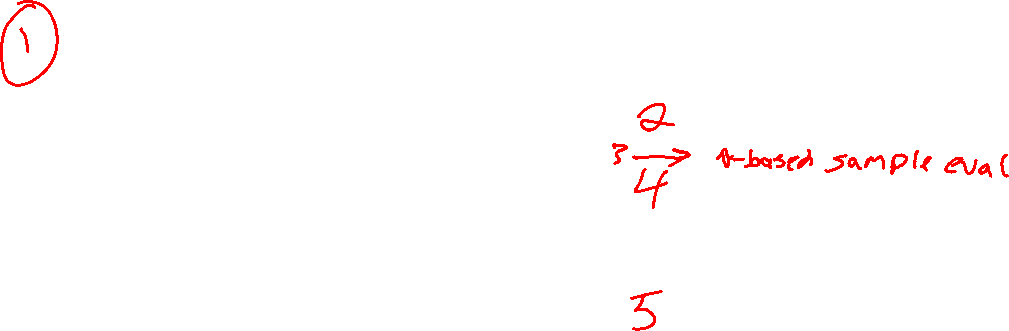 1
2
3 → -based sample eval
4
5